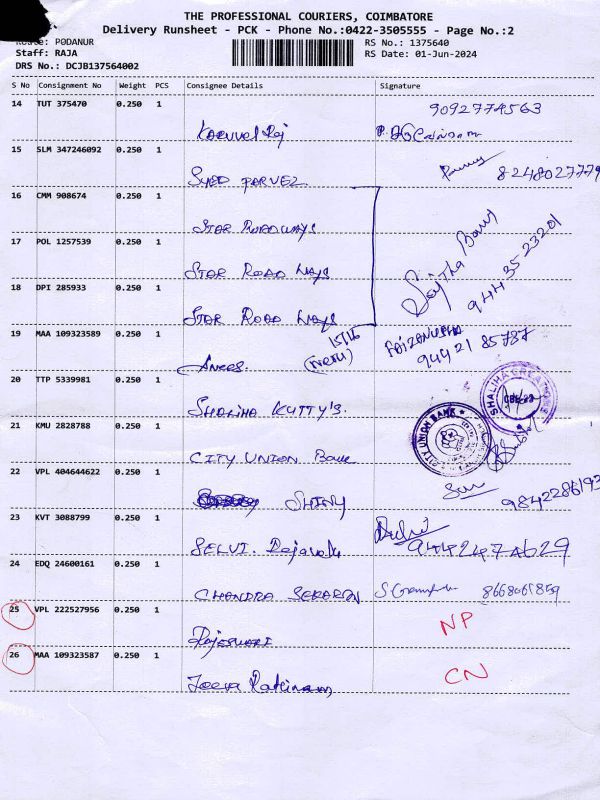 THE PROFESSIONAL COURIERS, COIMBATORE
Delivery Runsheet - PCK - Phone No.:0422-3505555 - Page No.:2
Route: PODANUR
RS No.: 1375640
Staff: RAJA
RS Date: 01-Jun-2024
DRS No.: DCJB137564002
S No Consignment No Weight PCS Consignee Details Signature
14 TUT 375470 0.250 1 9092774563
15 SLM 347246092 0.250 1 8248027779
SYED PARVEZ
16 CMM 908674 0.250 1
STAR ROADWAYS
17 POL 1257539 0.250 1 Sajitha Banu
STAR ROAD WAYS 9443523201
18 DPI 285933 0.250 1
STAR ROAD WAYS
19 MAA 109323589 0.250 1 FAIZANUSHA
Anees. 94421 85787
20 TTP 5339981 0.250 1
SHALIHA KUTTY'S. SHALIHA CREATIONS
21 KMU 2828788 0.250 1 CITY UNION BANK
CITY UNION Bank
22 VPL 404644622 0.250 1
SHINY 9842286193
23 KVT 3088799 0.250 1
SELVI. 9442474629
24 EDQ 24600161 0.250 1
CHANDRA SEKARAN 8668065859
25 VPL 222527956 0.250 1 NP
Rajeswari
26 MAA 109323587 0.250 1 CN
Jeeva Rathinam